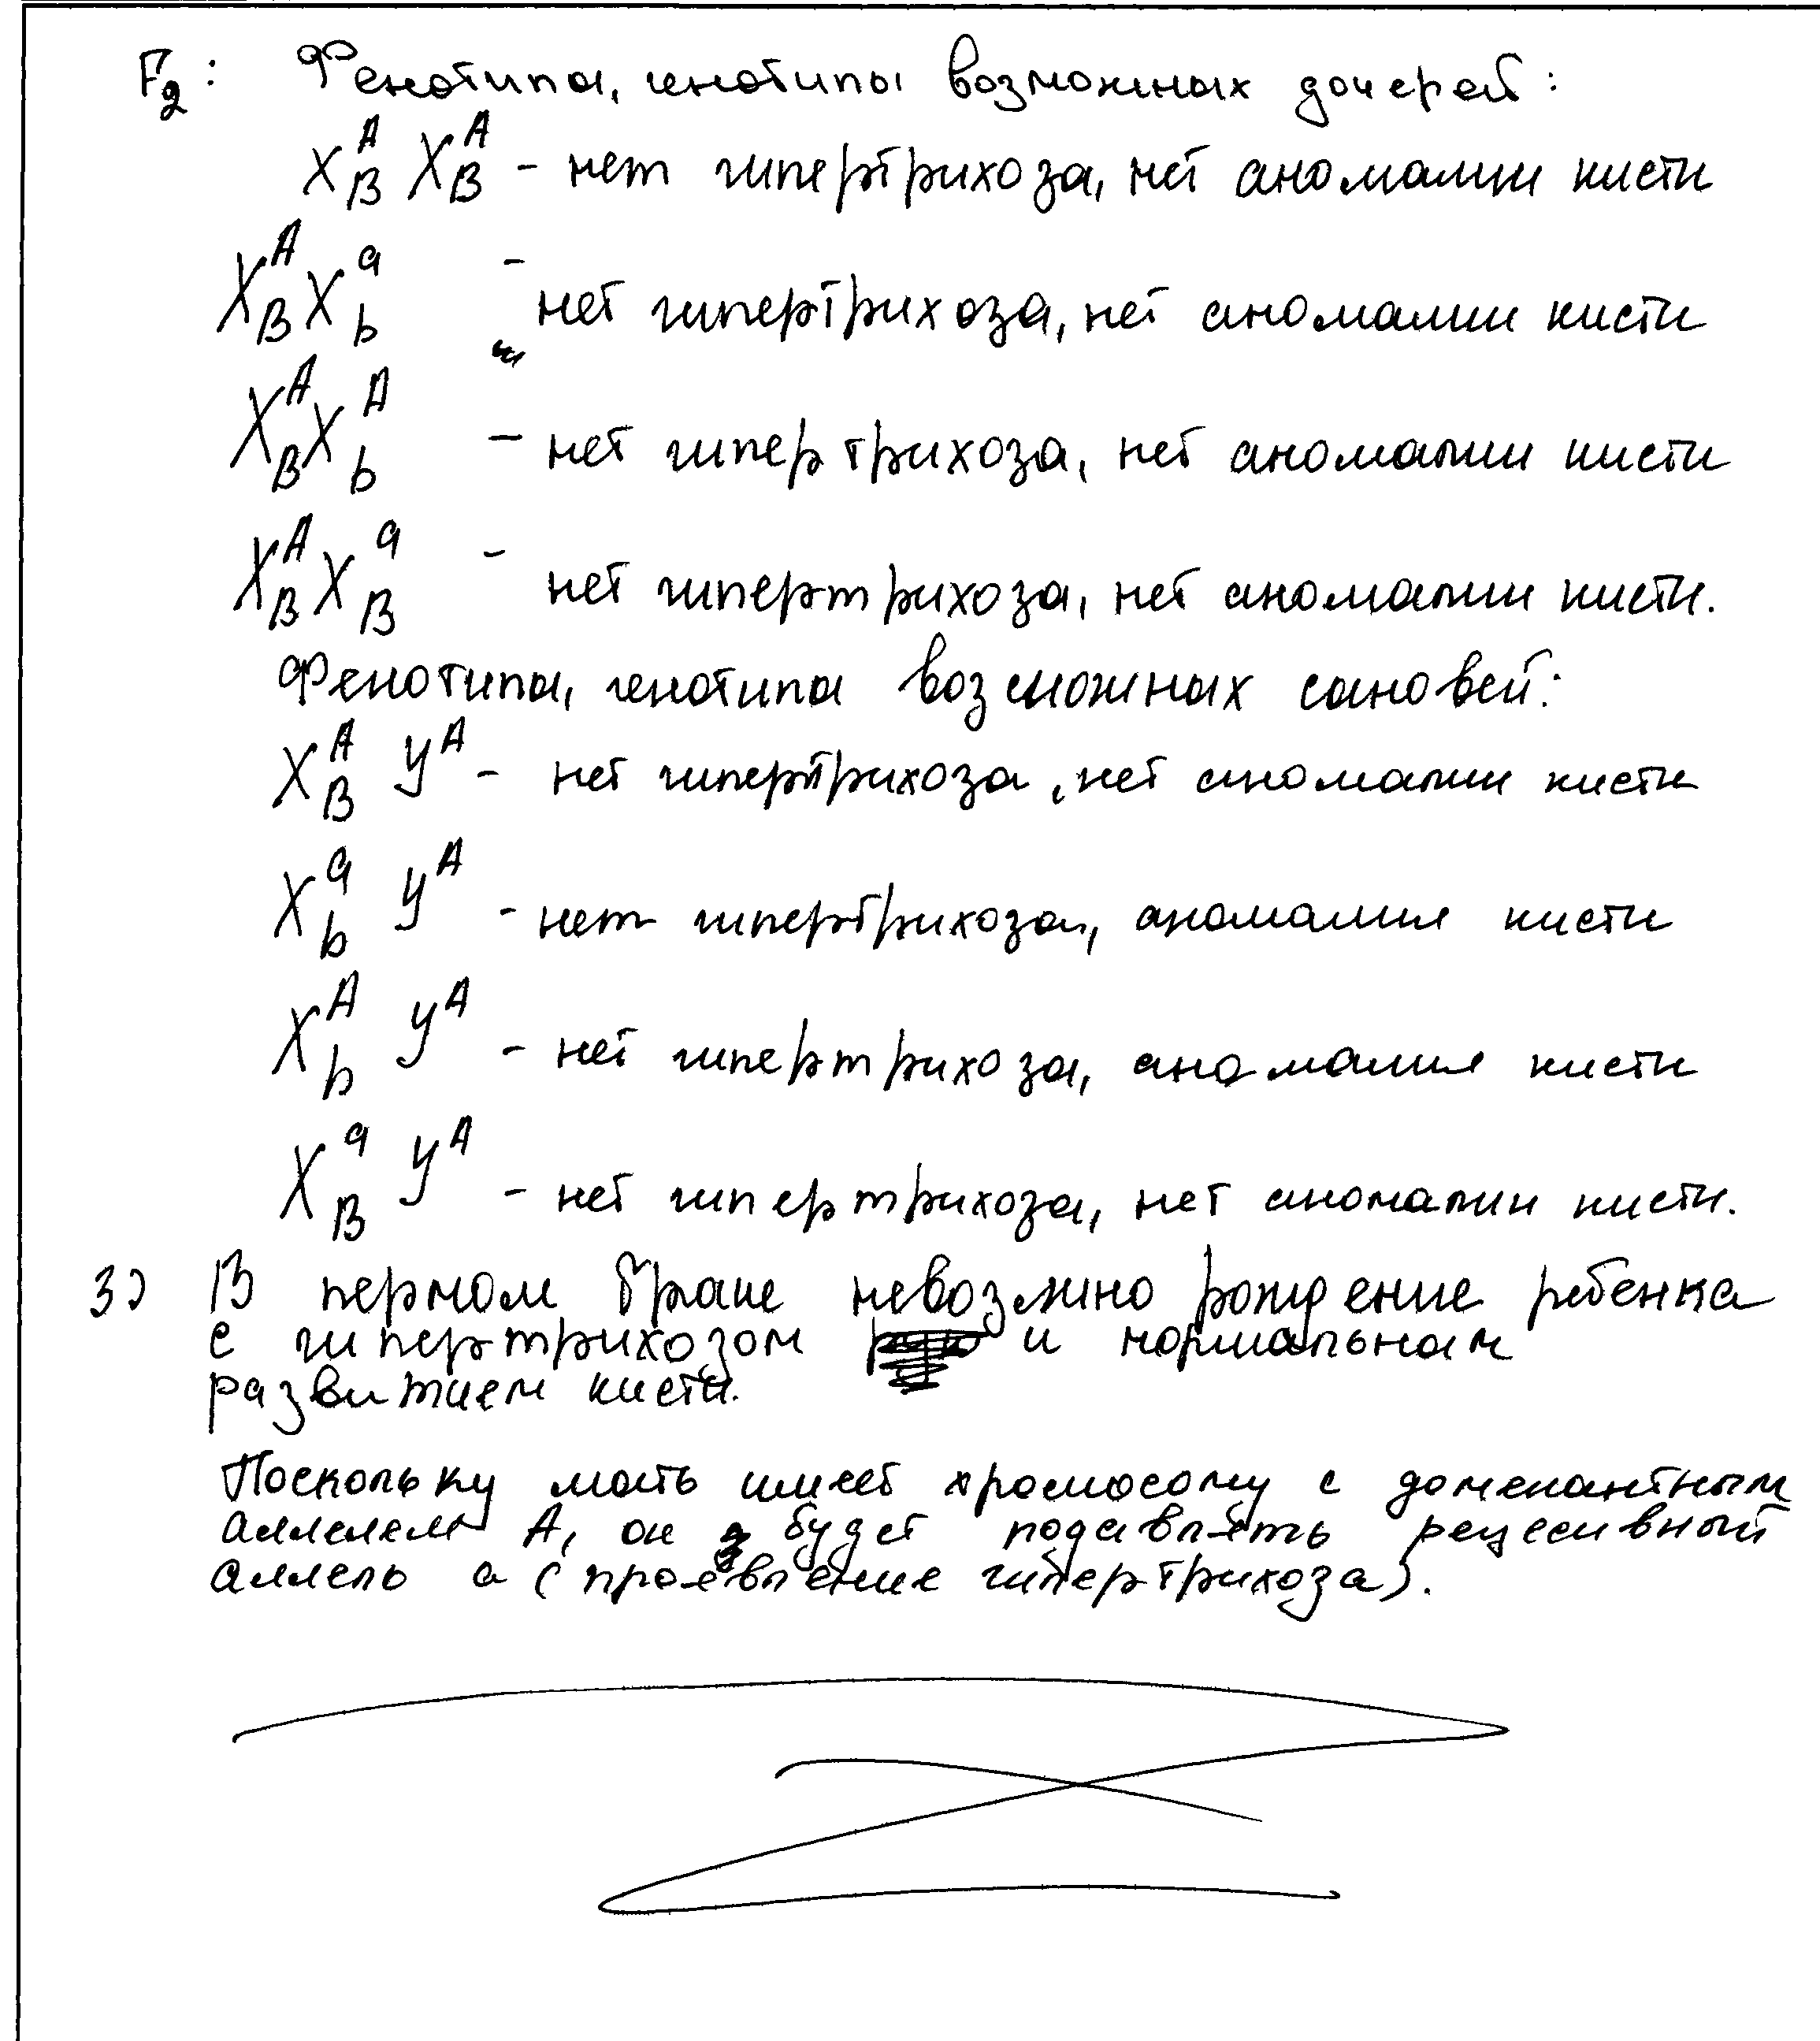 F₂: Фенотипы, генотипы возможных дочерей:
X^A_B X^A_B - нет гипертрихоза, нет аномалии кисти
X^A_B X^a_b - нет гипертрихоза, нет аномалии кисти
X^A_B X^A_b - нет гипертрихоза, нет аномалии кисти
X^A_B X^a_B - нет гипертрихоза, нет аномалии кисти.
Фенотипы, генотипы возможных сыновей:
X^A_B Y^A - нет гипертрихоза, нет аномалии кисти
X^a_b Y^A - нет гипертрихоза, аномалия кисти
X^A_b Y^A - нет гипертрихоза, аномалия кисти
X^a_B Y^A - нет гипертрихоза, нет аномалии кисти.
3) В первом браке невозможно рождение ребенка
с гипертрихозом и нормальным
развитием кисти.
Поскольку мать имеет хромосому с доменантным
аллелем А, он будет подавлять рецессивный
аллель а (проявление гипертрихоза).